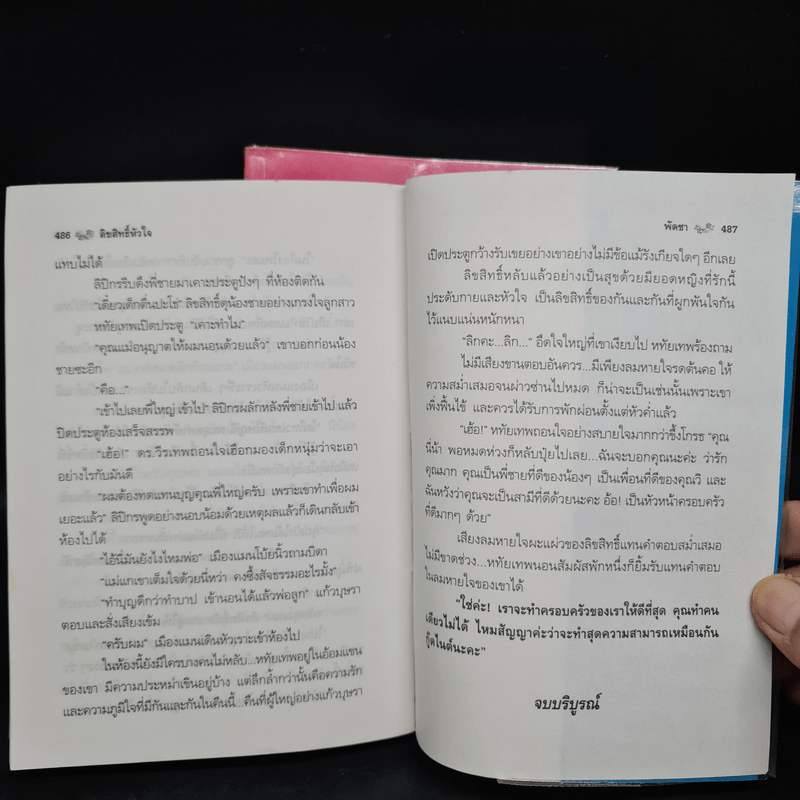 486 ลิขสิทธิ์หัวใจ
แทบไม่ได้
ลิปิกรรีบดึงพี่ชายมาเคาะประตูปังๆ ที่ห้องติดกัน
"เดี๋ยวเด็กตื่นปะโธ่" ลิขสิทธิ์ดุน้องชายอย่างเกรงใจลูกสาว
หทัยเทพเปิดประตู "เคาะทำไม"
"คุณแม่อนุญาตให้ผมนอนด้วยแล้ว" เขาบอกก่อนน้อง
ชายชะอีก
"คือ..."
"เข้าไปเลยพี่ใหญ่ เข้าไป" ลิปิกรผลักหลังพี่ชายเข้าไป แล้ว
ปิดประตูห้องเสร็จสรรพ
"เฮ้อ!" ดร.วีรเทพถอนใจเฮือกมองเด็กหนุ่มว่าจะเอา
อย่างไรกับมันดี
"ผมต้องทดแทนบุญคุณพี่ใหญ่ครับ เพราะเขาทำเพื่อผม
เยอะแล้ว" ลิปิกรพูดอย่างนอบน้อมด้วยเหตุผลแล้วก็เดินกลับเข้า
ห้องไปได้
"ไอ้นี่มันยังไงไหมพ่อ" เมืองแมนโบ้ยนิ้วถามบิดา
"แม่แกเขาเต็มใจด้วยนี่หว่า คงซึ้งสัจธรรมอะไรมั้ง"
"ทำบุญดีกว่าทำบาป เข้านอนได้แล้วพ่อลูก" แก้วบุษรา
ตอบและสั่งเสียงเข้ม
"ครับผม" เมืองแมนเดินหัวเราะเข้าห้องไป
ในห้องนี้ยังมีใครบางคนไม่หลับ...หทัยเทพอยู่ในอ้อมแขน
ของเขา มีความประหม่าเขินอยู่บ้าง แต่ลึกล้ำกว่านั้นคือความรัก
และความภูมิใจที่มีกันและกันในคืนนี้...คืนที่ผู้ใหญ่อย่างแก้วบุษรา
พัดชา 487
เปิดประตูกว้างรับเขยอย่างเขาอย่างไม่มีข้อแม้รังเกียจใดๆ อีกเลย
ลิขสิทธิ์หลับแล้วอย่างเป็นสุขด้วยมียอดหญิงที่รักนี้
ประดับกายและหัวใจ เป็นลิขสิทธิ์ของกันและกันที่ผูกพันใจกัน
ไว้แนบแน่นหนักหนา
"ลิกคะ...ลิก..." อึดใจใหญ่ที่เขาเงียบไป หทัยเทพร้องถาม
ไม่มีเสียงขานตอบอันควร...มีเพียงลมหายใจรดต้นคอ ให้
ความสม่ำเสมอจนผ่าวซ่านไปหมด ก็น่าจะเป็นเช่นนั้นเพราะเขา
เพิ่งฟื้นไข้ และควรได้รับการพักผ่อนตั้งแต่หัวค่ำแล้ว
"เฮ้อ!" หทัยเทพถอนใจอย่างสบายใจมากกว่าขึ้งโกรธ "คุณ
นี่น้า พอหมดห่วงก็หลับปุ๋ยไปเลย...ฉันจะบอกคุณนะคะ ว่ารัก
คุณมาก คุณเป็นพี่ชายที่ดีของน้องๆ เป็นเพื่อนที่ดีของคุณวี และ
ฉันหวังว่าคุณจะเป็นสามีที่ดีด้วยนะคะ อ้อ! เป็นหัวหน้าครอบครัว
ที่ดีมากๆ ด้วย"
เสียงลมหายใจผะแผ่วของลิขสิทธิ์แทนคำตอบสม่ำเสมอ
ไม่มีขาดช่วง...หทัยเทพนอนสัมผัสพักหนึ่งก็ยิ้มรับแทนคำตอบ
ในลมหายใจของเขาได้
"ใช่ค่ะ! เราจะทำครอบครัวของเราให้ดีที่สุด คุณทำคน
เดียวไม่ได้ ไหมสัญญาค่ะว่าจะทำสุดความสามารถเหมือนกัน
กู๊ดไนต์นะคะ"
จบบริบูรณ์